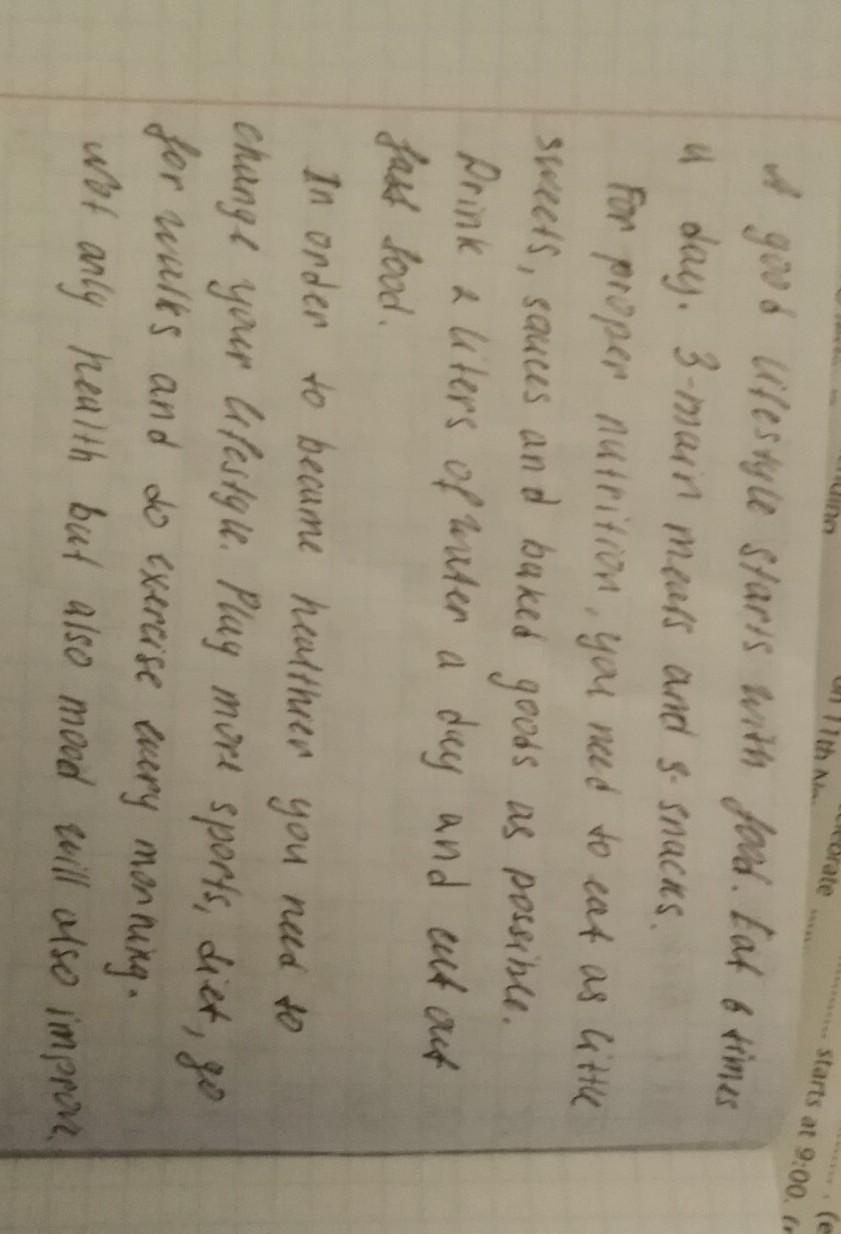 A good lifestyle starts with food. Eat 6 times
a day. 3-main meals and 3-snacks.
For proper nutrition, you need to eat as little
sweets, sauces and baked goods as possible.
Drink 2 liters of water a day and cut out
fast food.
In order to became healthier you need to
change your lifestyle. Play more sports, diet, go
for walks and do exercise every morning.
Not only health but also mood will also improve.
on 11th
starts at 9:00.